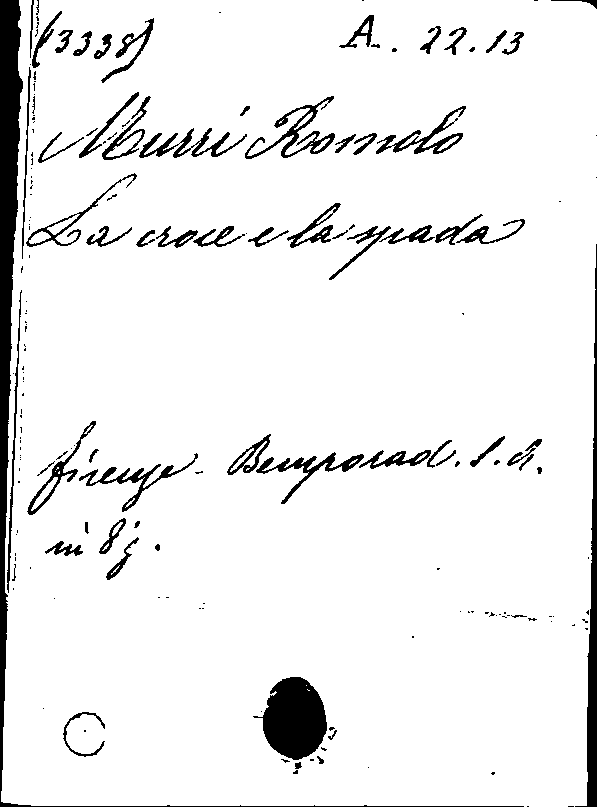 (3338) A. 22.13
Murri Romolo
La croce e la spada
Firenze - Bemporad. s. a.
in 8°.